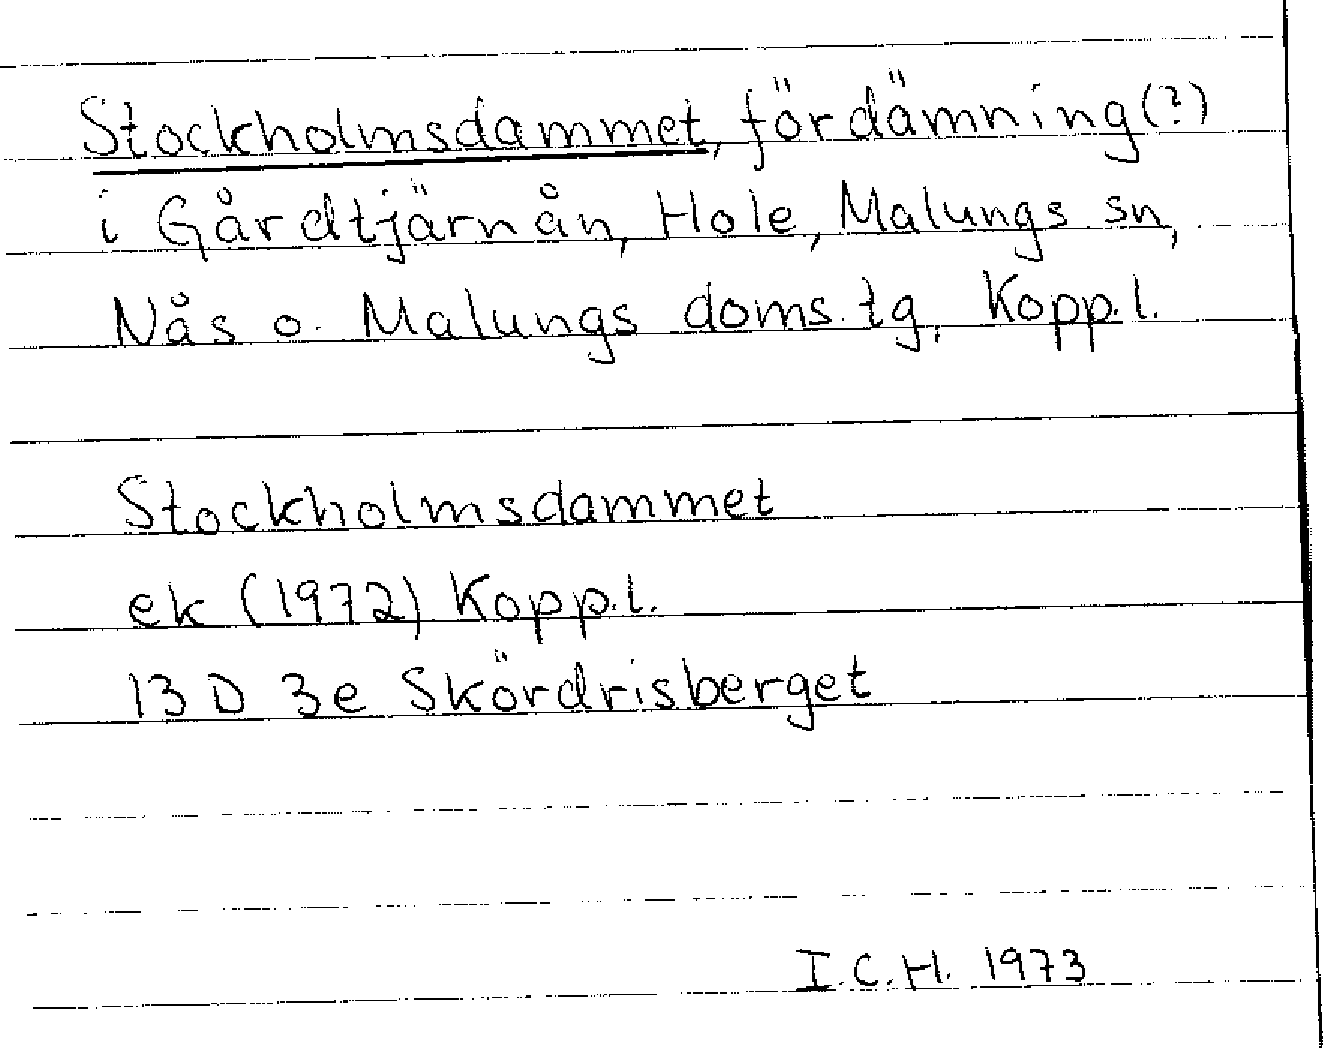 Stockholmsdammet, fördämning(?)
i Gårdtjärnån, Hole, Malungs sn,
Nås o. Malungs doms.tg, Kopp.l.
Stockholmsdammet
ek (1972) Kopp.l.
13 D 3e Skördrisberget
I.C.H. 1973